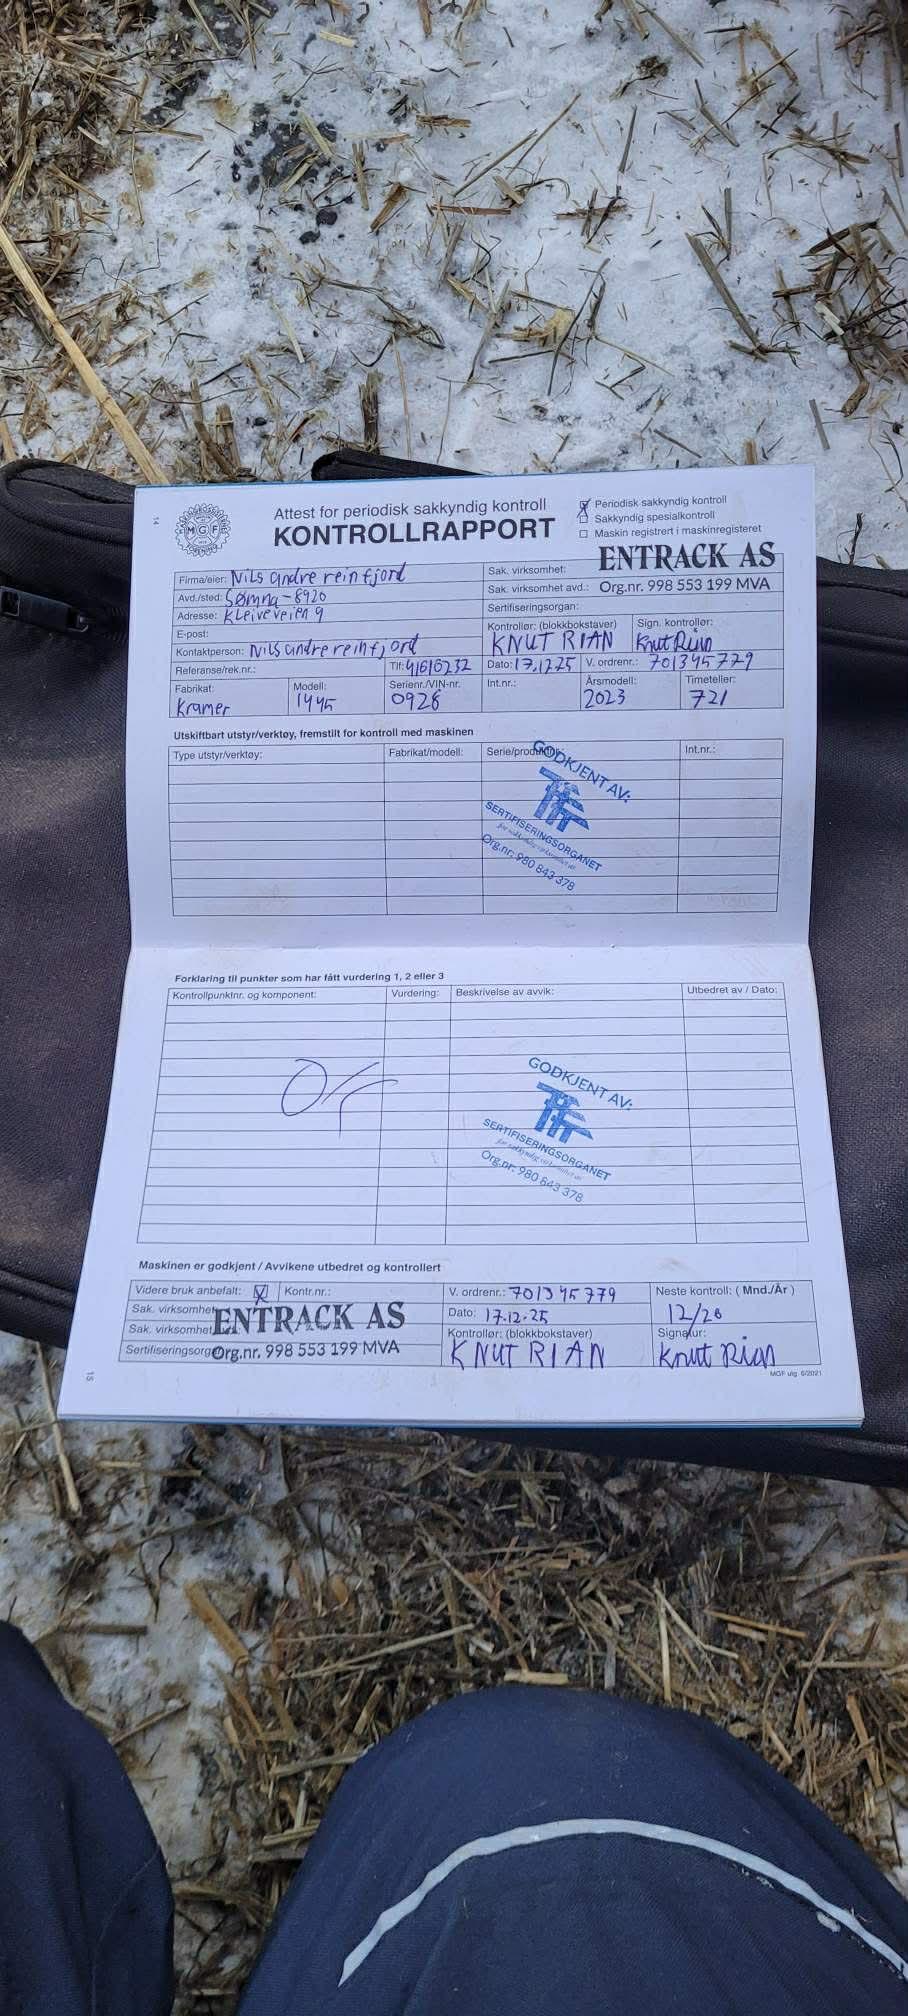 14
MGF
Attest for periodisk sakkyndig kontroll
KONTROLLRAPPORT
Periodisk sakkyndig kontroll
Sakkyndig spesialkontroll
Maskin registrert i maskinregisteret
Firma/eier: Nils andre reinfjord
Avd./sted: Sømna - 8920
Adresse: Kleiveveien 9
E-post:
Kontaktperson: Nils andre reinfjord
Referanse/rek.nr.: Tlf: 41616232
Sak. virksomhet: ENTRACK AS
Sak. virksomhet avd.: Org.nr. 998 553 199 MVA
Sertifiseringsorgan:
Kontrollør: (blokkbokstaver) Sign. kontrollør:
KNUT RIAN Knut Rian
Dato: 17.12.25 V. ordrenr.: 701345779
Fabrikat: Modell: Serienr./VIN-nr. Int.nr.: Årsmodell: Timeteller:
Kramer 1445 0928 2023 721
Utskiftbart utstyr/verktøy, fremstilt for kontroll med maskinen
Type utstyr/verktøy: Fabrikat/modell: Int.nr.:
GODKJENT AV:
SERTIFISERINGSORGANET
Org.nr: 980 843 378
Forklaring til punkter som har fått vurdering 1, 2 eller 3
Kontrollpunktnr. og komponent: Vurdering: Beskrivelse av avvik: Utbedret av / Dato:
GODKJENT AV:
SERTIFISERINGSORGANET
Org.nr: 980 843 378
Maskinen er godkjent / Avvikene utbedret og kontrollert
Videre bruk anbefalt: Kontr.nr.: V. ordrenr.: 701345779 Neste kontroll: ( Mnd./År )
Sak. virksomhet ENTRACK AS Dato: 17.12.25 12/26
Sak. virksomhet
Kontrollør: (blokkbokstaver) Signatur:
Org.nr. 998 553 199 MVA KNUT RIAN Knut Rian
MGF utg. 6/2021
15